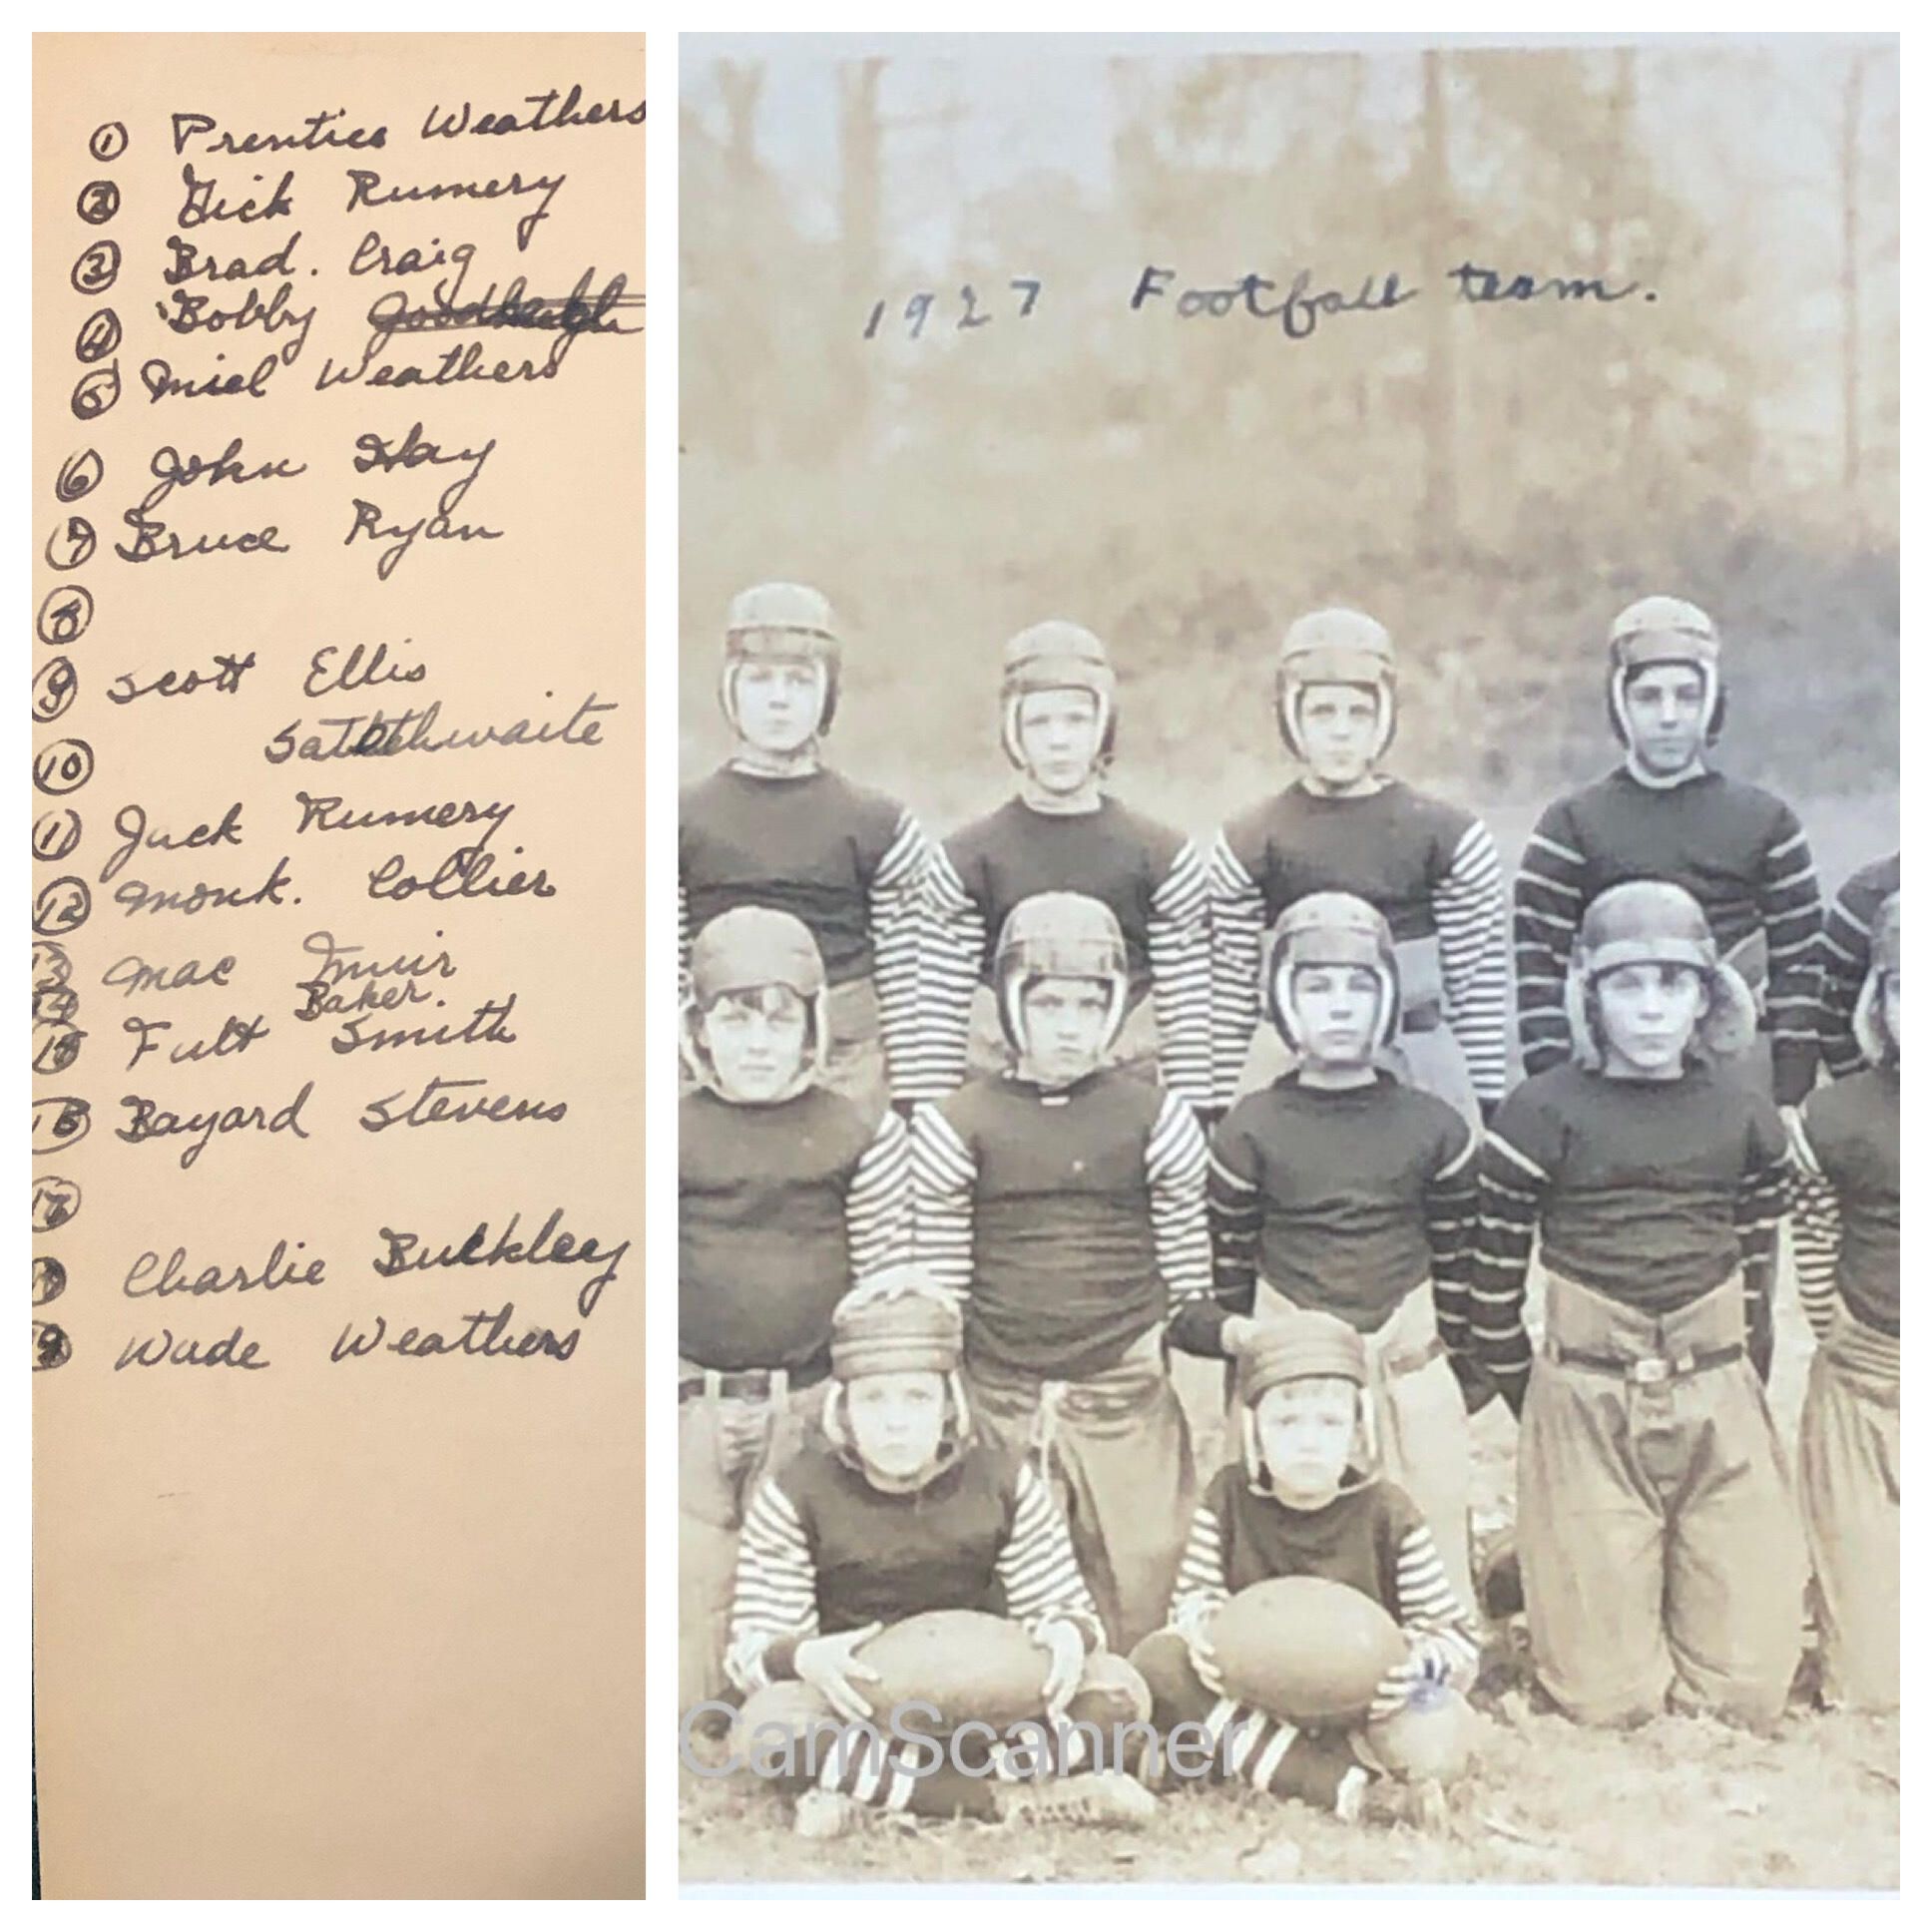 ① Prentice Weathers
② Dick Rumery
③ Brad. Craig
④ Bobby
⑤ Miel Weathers
⑥ John Hay
⑦ Bruce Ryan
⑧
⑨ Scott Ellis
⑩ Satterthwaite
⑪ Jack Rumery
⑫ Monk. Collier
⑬ Mac Muir
⑭ Baker.
⑮ Fult Smith
⑯ Bayard Stevens
⑰
Charlie Bulkley
Wade Weathers
1927 Football team.
CamScanner